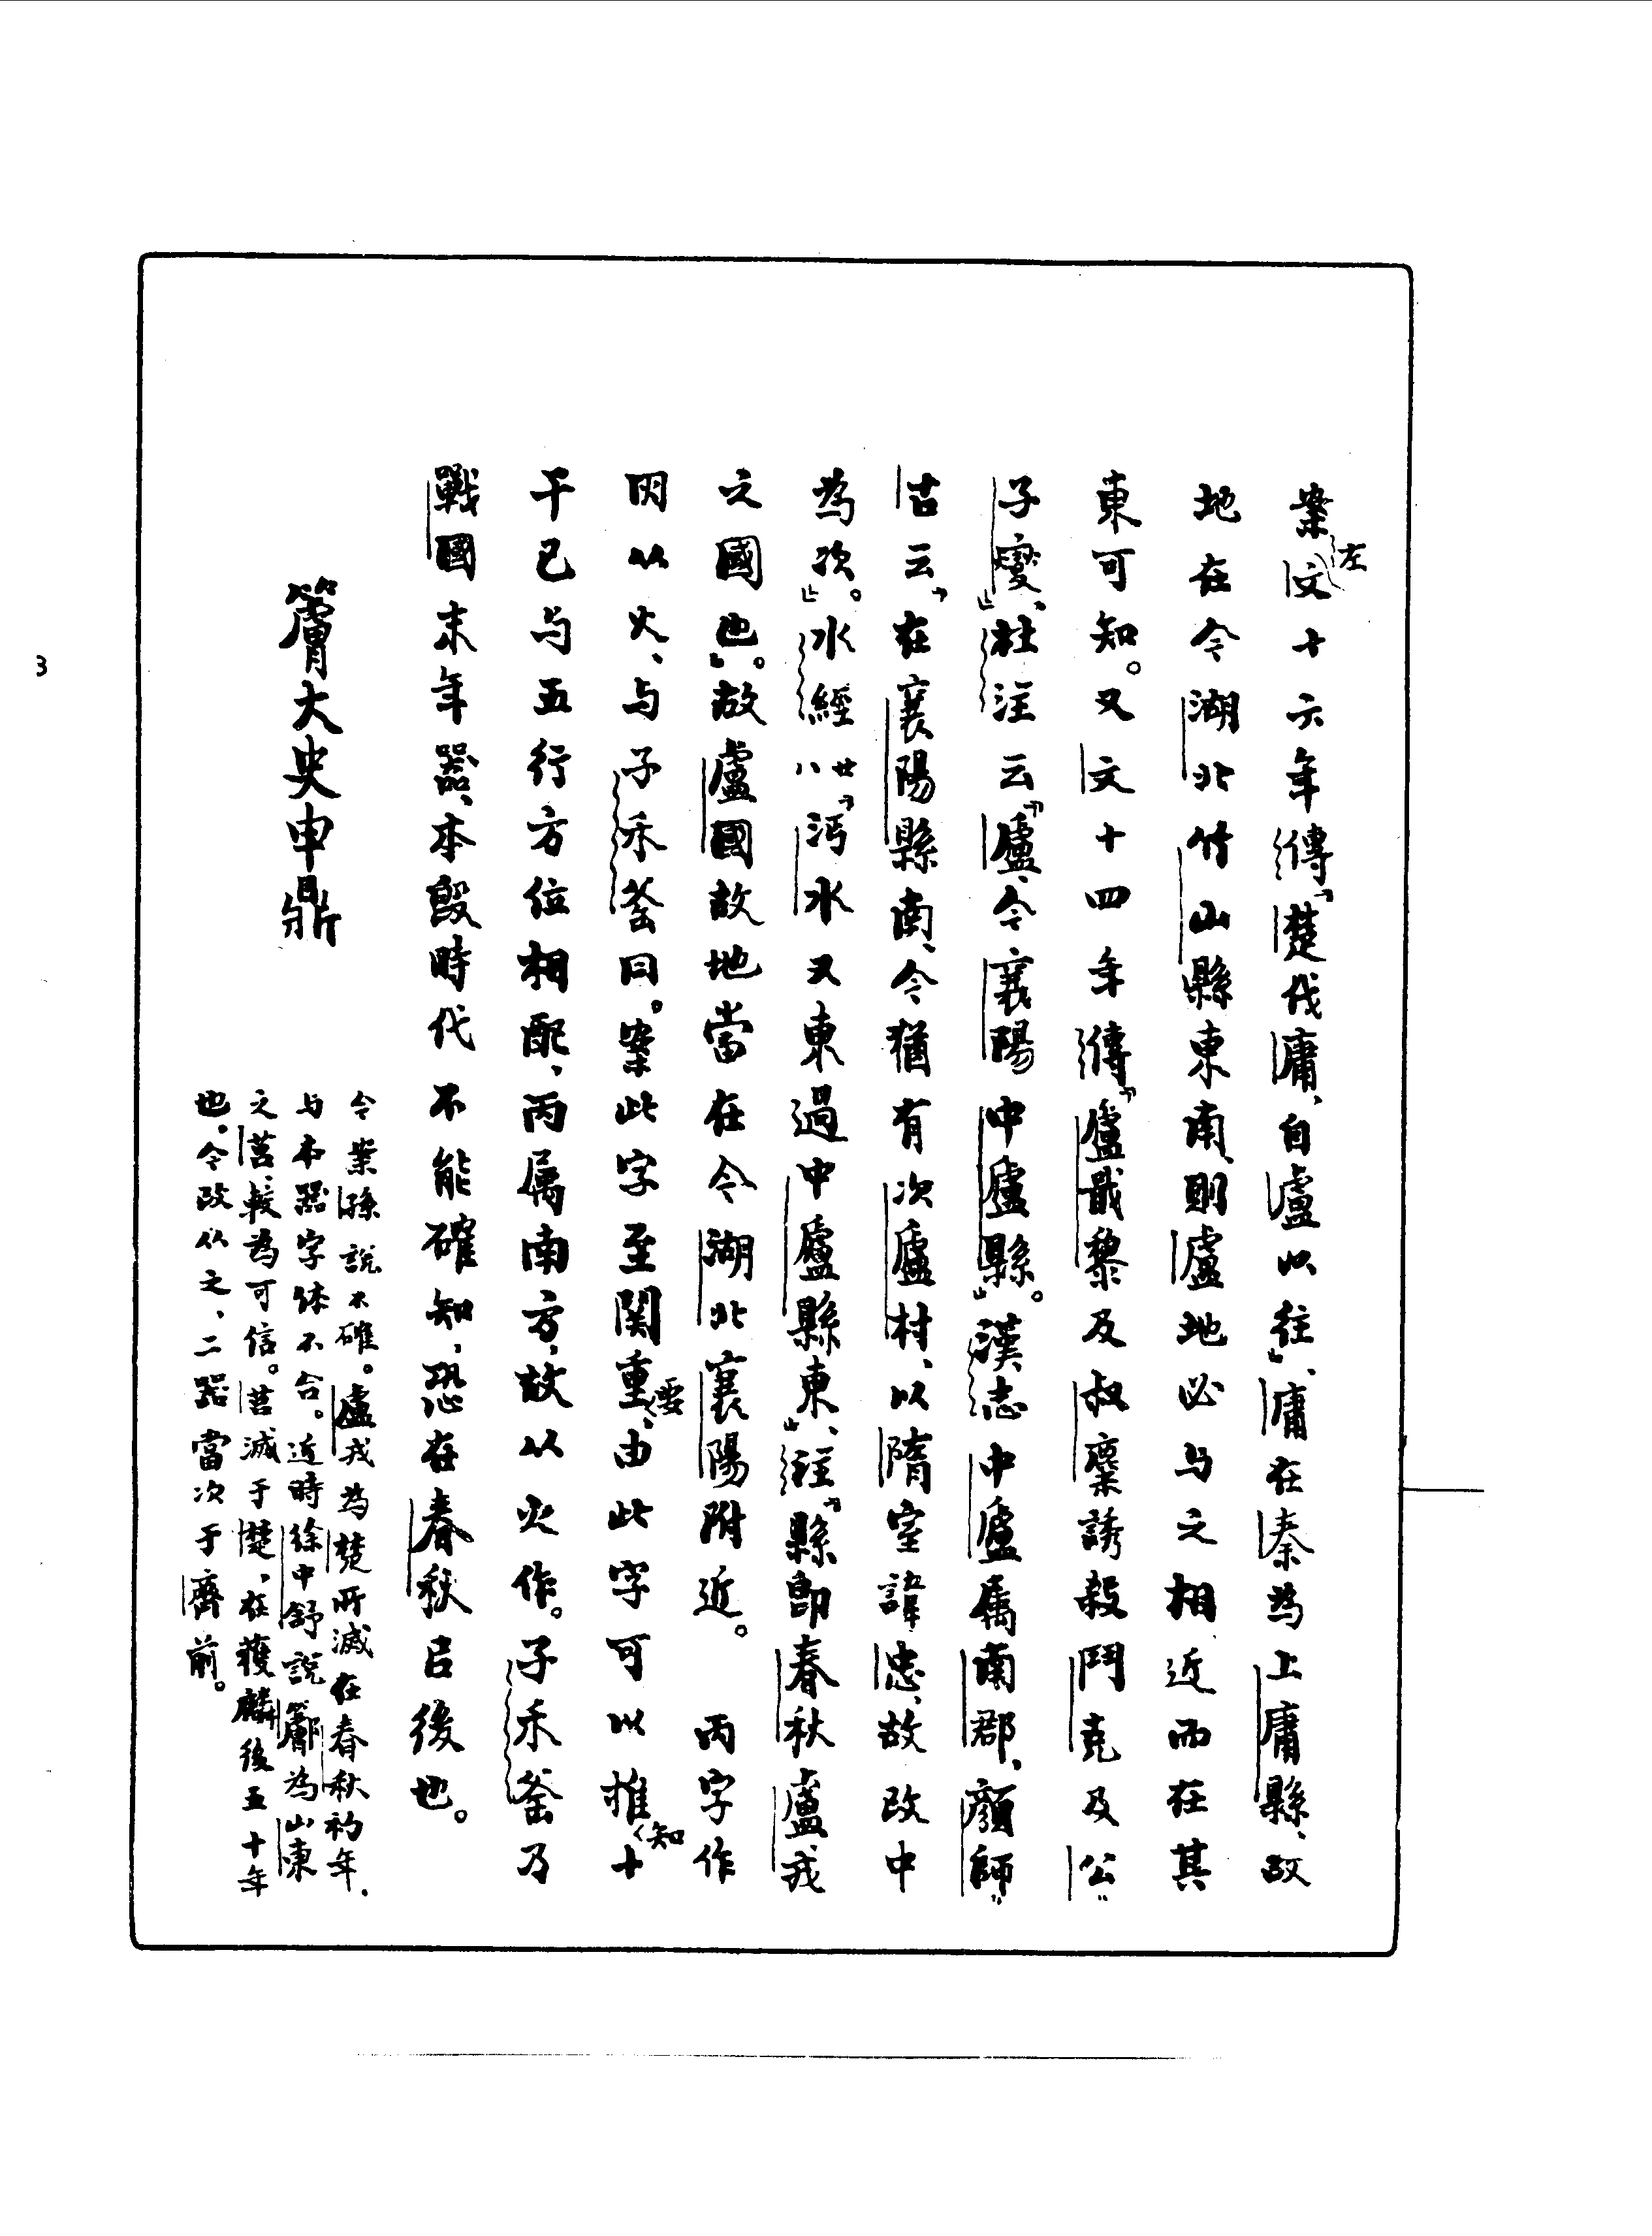 案左文十六年傳「楚伐庸、自盧以往」、庸在秦為上庸縣、故
地在今湖北竹山縣東南、則盧地必与之相近而在其
東可知。又文十四年傳「盧戢黎及叔麇誘殺鬥克及公
子燮」、杜注云「盧、今襄陽中盧縣」。漢志中盧屬南郡、顏師
古云、「在襄陽縣南、今猶有次盧村、以隋室諱忠、故改中
為次」。水經廿八「沔水又東過中盧縣東」、注「縣即春秋盧戎
之國也」。故盧國故地當在今湖北襄陽附近。 丙字作
㶨从火、与子禾釜同。案此字至関重要、由此字可以推知十
干已与五行方位相配、丙属南方、故从火作。子禾釜乃
戰國末年器、本𣪘時代不能確知、恐在春秋㠯後也。
簷大史申鼎
今案孫說不確。盧戎為楚所滅在春秋初年、
与本器字体不合。近時徐中舒說鄺為山東
之莒、較為可信。莒滅于楚、在獲麟後五十年
也。今改从之、二器當次于齊前。